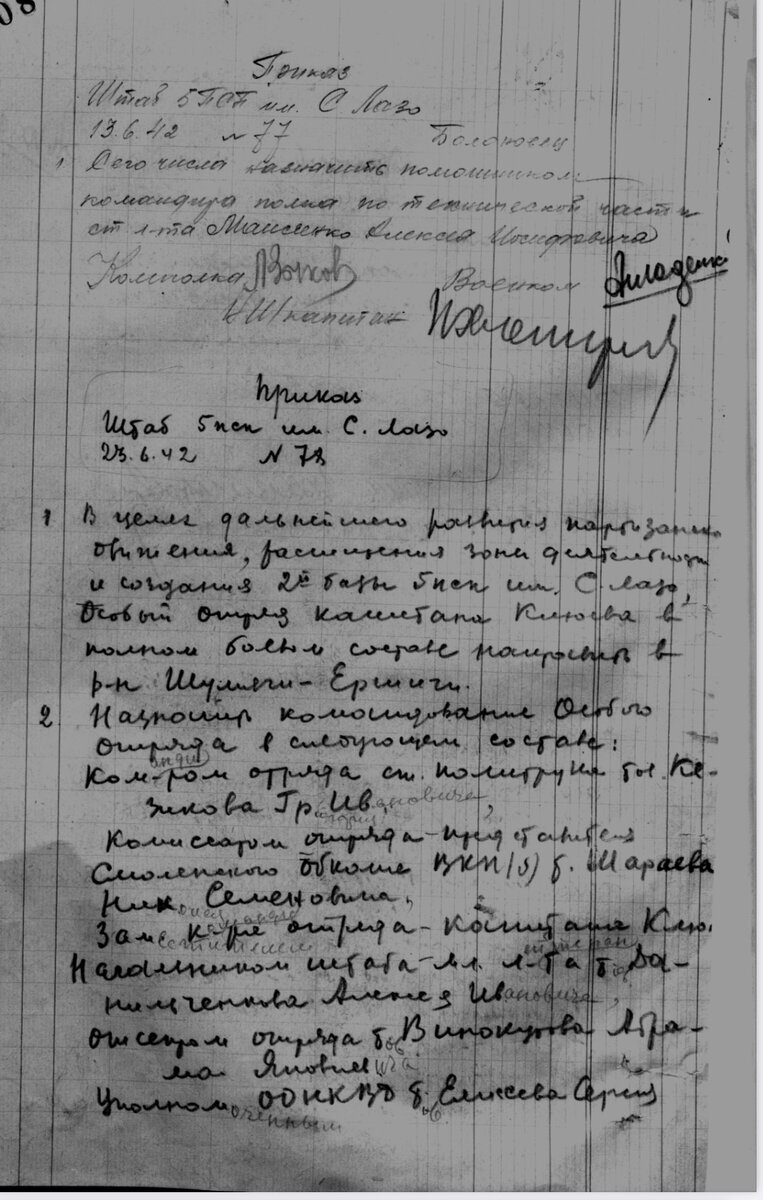 08
Приказ
Штаб 5 ПСП им. С Лазо
13.6.42 № 77
1 Сего числа назначить помошником
командира полка по технической части
ст л-та Моисеенко Алексея Иосифовича
Комполка Военком
НШ капитан
Приказ
Штаб 5 псп им. С. Лазо
23.6.42 № 78
1 В целях дальнейшего развития партизанско
движения, расширения зоны деятельности
и создания 2й базы 5 псп им. С. Лазо,
Особый отряд капитана Клюева в
полном боевом составе направить в
р-н Шумячи - Ершичи.
2. Назначить командование Особого
отряда в следующем составе:
Ком-ром отряда ст. политрука тов. Ке-
зикова Григ Ивановича,
Комиссаром отряда - представителя
Смоленского Обкома ВКП(б) т. Шараева
Ник. Семеновича,
Заместителем к-ра отряда - капитана Клю.
Начальником штаба - мл. л-та т. Да-
нильченкова Алексея Ивановича,
отсекром отряда тов Винокурова Абра-
ма Яковлевича
Уполномоченным ООНКВД тов Елисеева Сергея